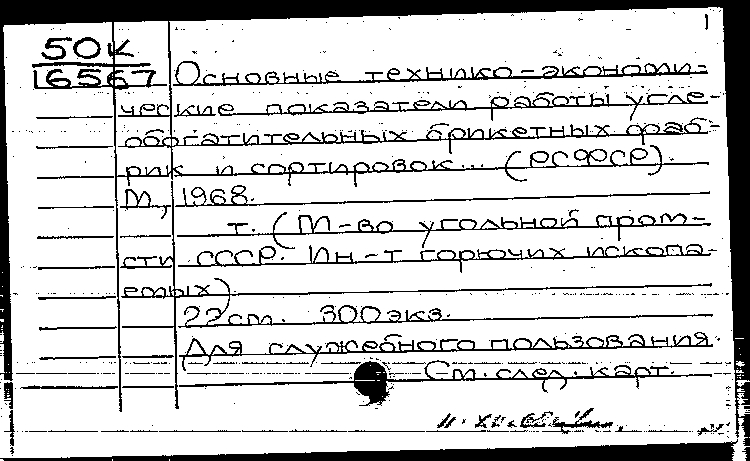 1
50К
16567 Основные технико-экономи-
ческие показатели работы угле-
обогатительных брикетных фаб-
рик и сортировок... (РСФСР).
М, 1968.
т. (М-во угольной пром-
сти СССР. Ин-т горючих ископа-
емых)
22см. 300экз.
Для служебного пользования.
См. след. карт.